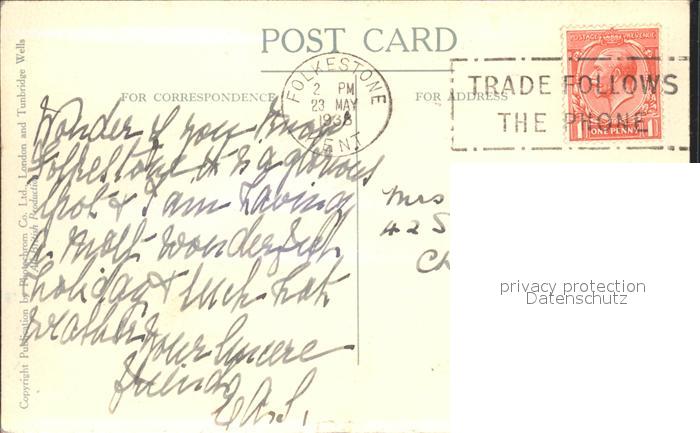 POST CARD
FOR CORRESPONDENCE
FOR ADDRESS
FOLKESTONE
2 PM
23 MAY
1933
KENT
TRADE FOLLOWS
THE PHONE
POSTAGE REVENUE
ONE PENNY
Wonder if you know
Folkestone it is a glorious
spot & I am having
a most wonderful
holiday & such hot
weather
Your sincere
friend
Mrs
42 S
Ch
Copyright Publication by Photochrom Co. Ltd., London and Tunbridge Wells
All British Production
privacy protection
Datenschutz